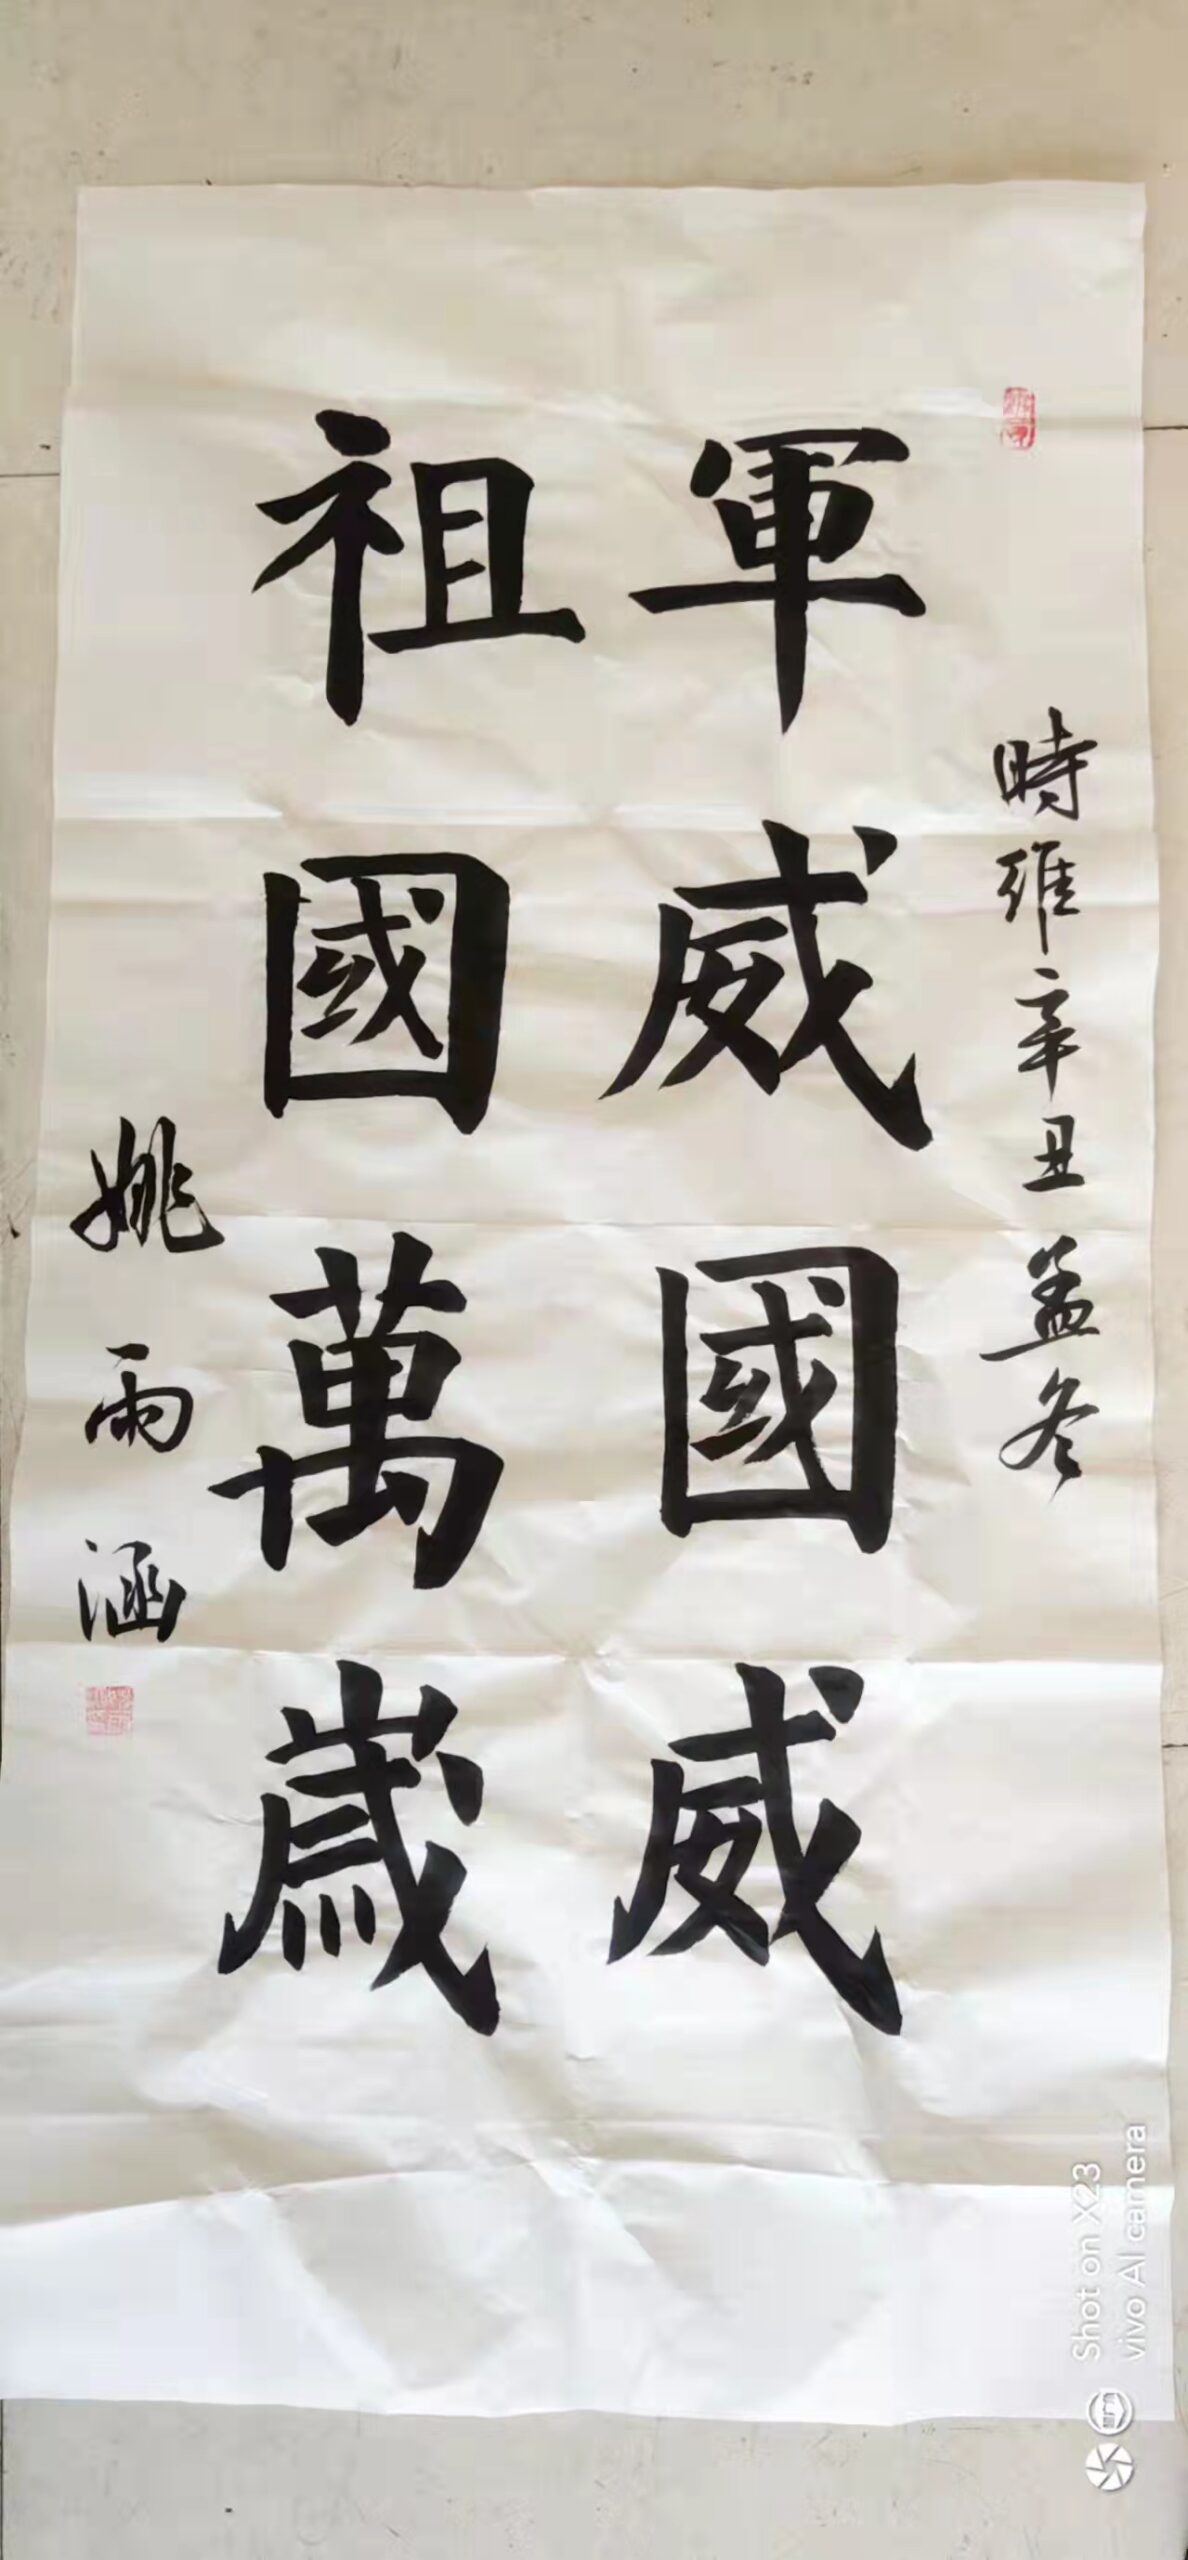 時維辛丑孟冬
軍威國威
祖國萬歲
姚雨涵
Shot on X23
vivo AI camera